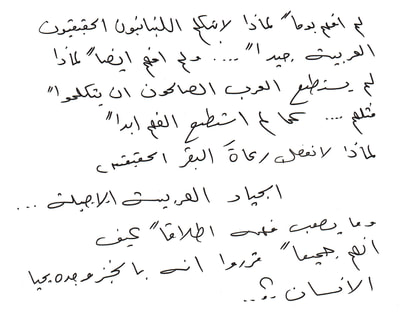 لم افهم يوماً لماذا لا يتكلم اللبنانيون الحقيقيون
العربية جيداً .... ولم افهم ايضاً لماذا
لم يستطيع العرب الصالحون ان يتكلموا
مثلهم .... كما لم استطيع الفهم ابداً
لماذا لا تفضل رعاة البقر الحقيقيين
الجياد العربية الاصيلة ...
وما يصعب فهمه اطلاقاً كيف
انهم جميعاً قرروا انه بالخبز وحده يحيا
الأنسان ؟..